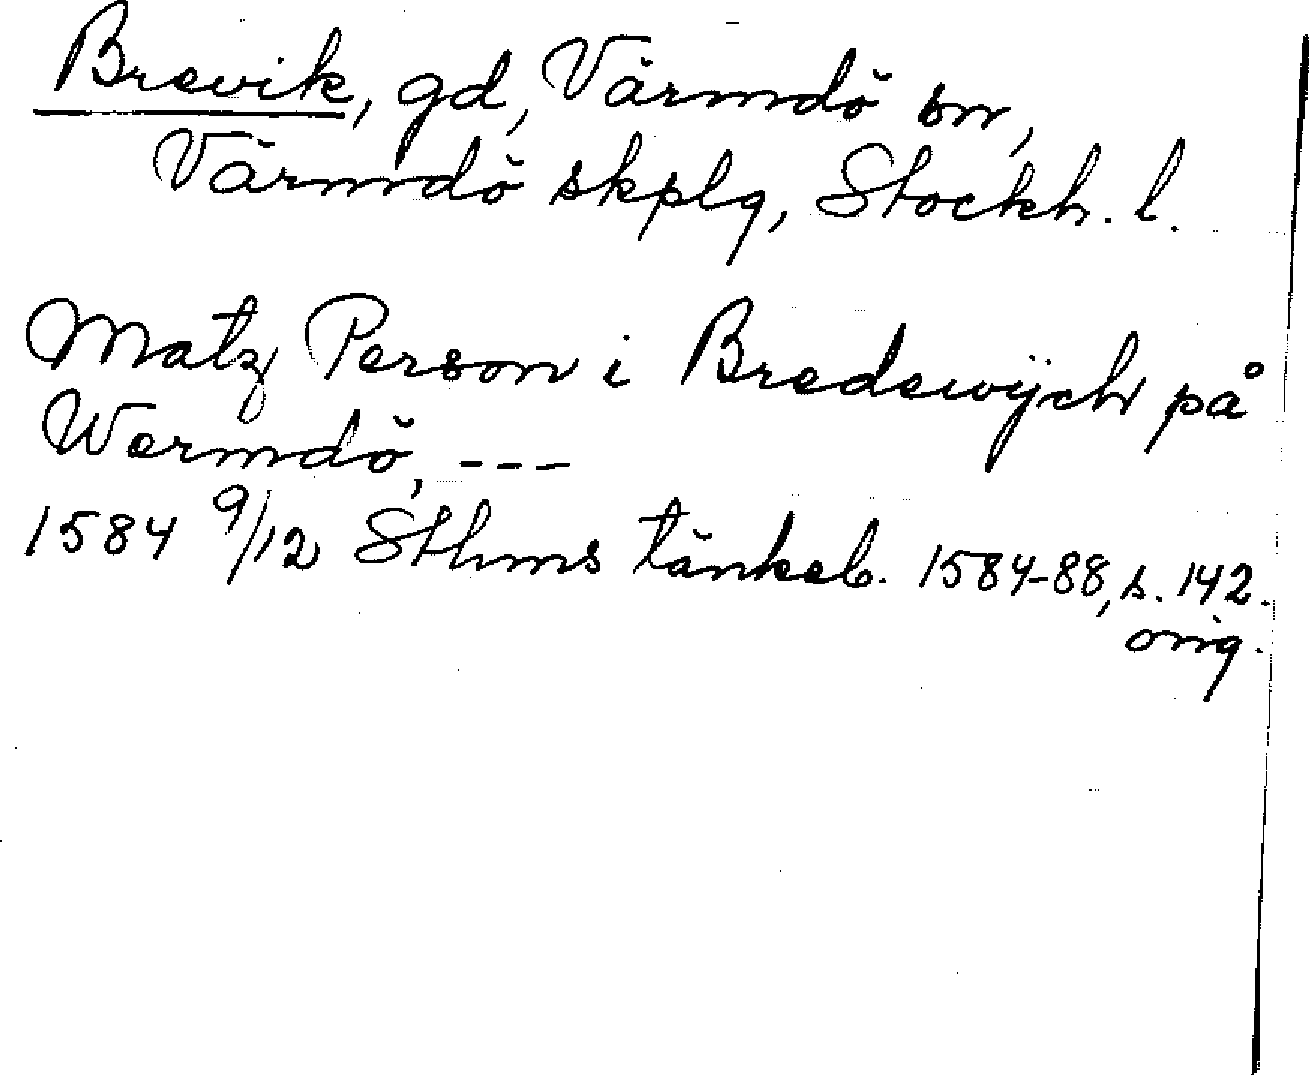 Brevik, gd, Värmdö sn,
Värmdö skplg, Stockh. l.
Matz Person i Bredewijch på
Wermdö, ---
1584 9/12 Sthms tänkeb. 1584-88, s. 142.
orig.